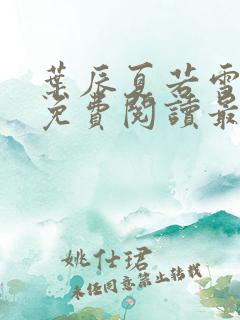 葉辰夏若雪
免費閱讀最
姚仕珺
未经同意禁止转载